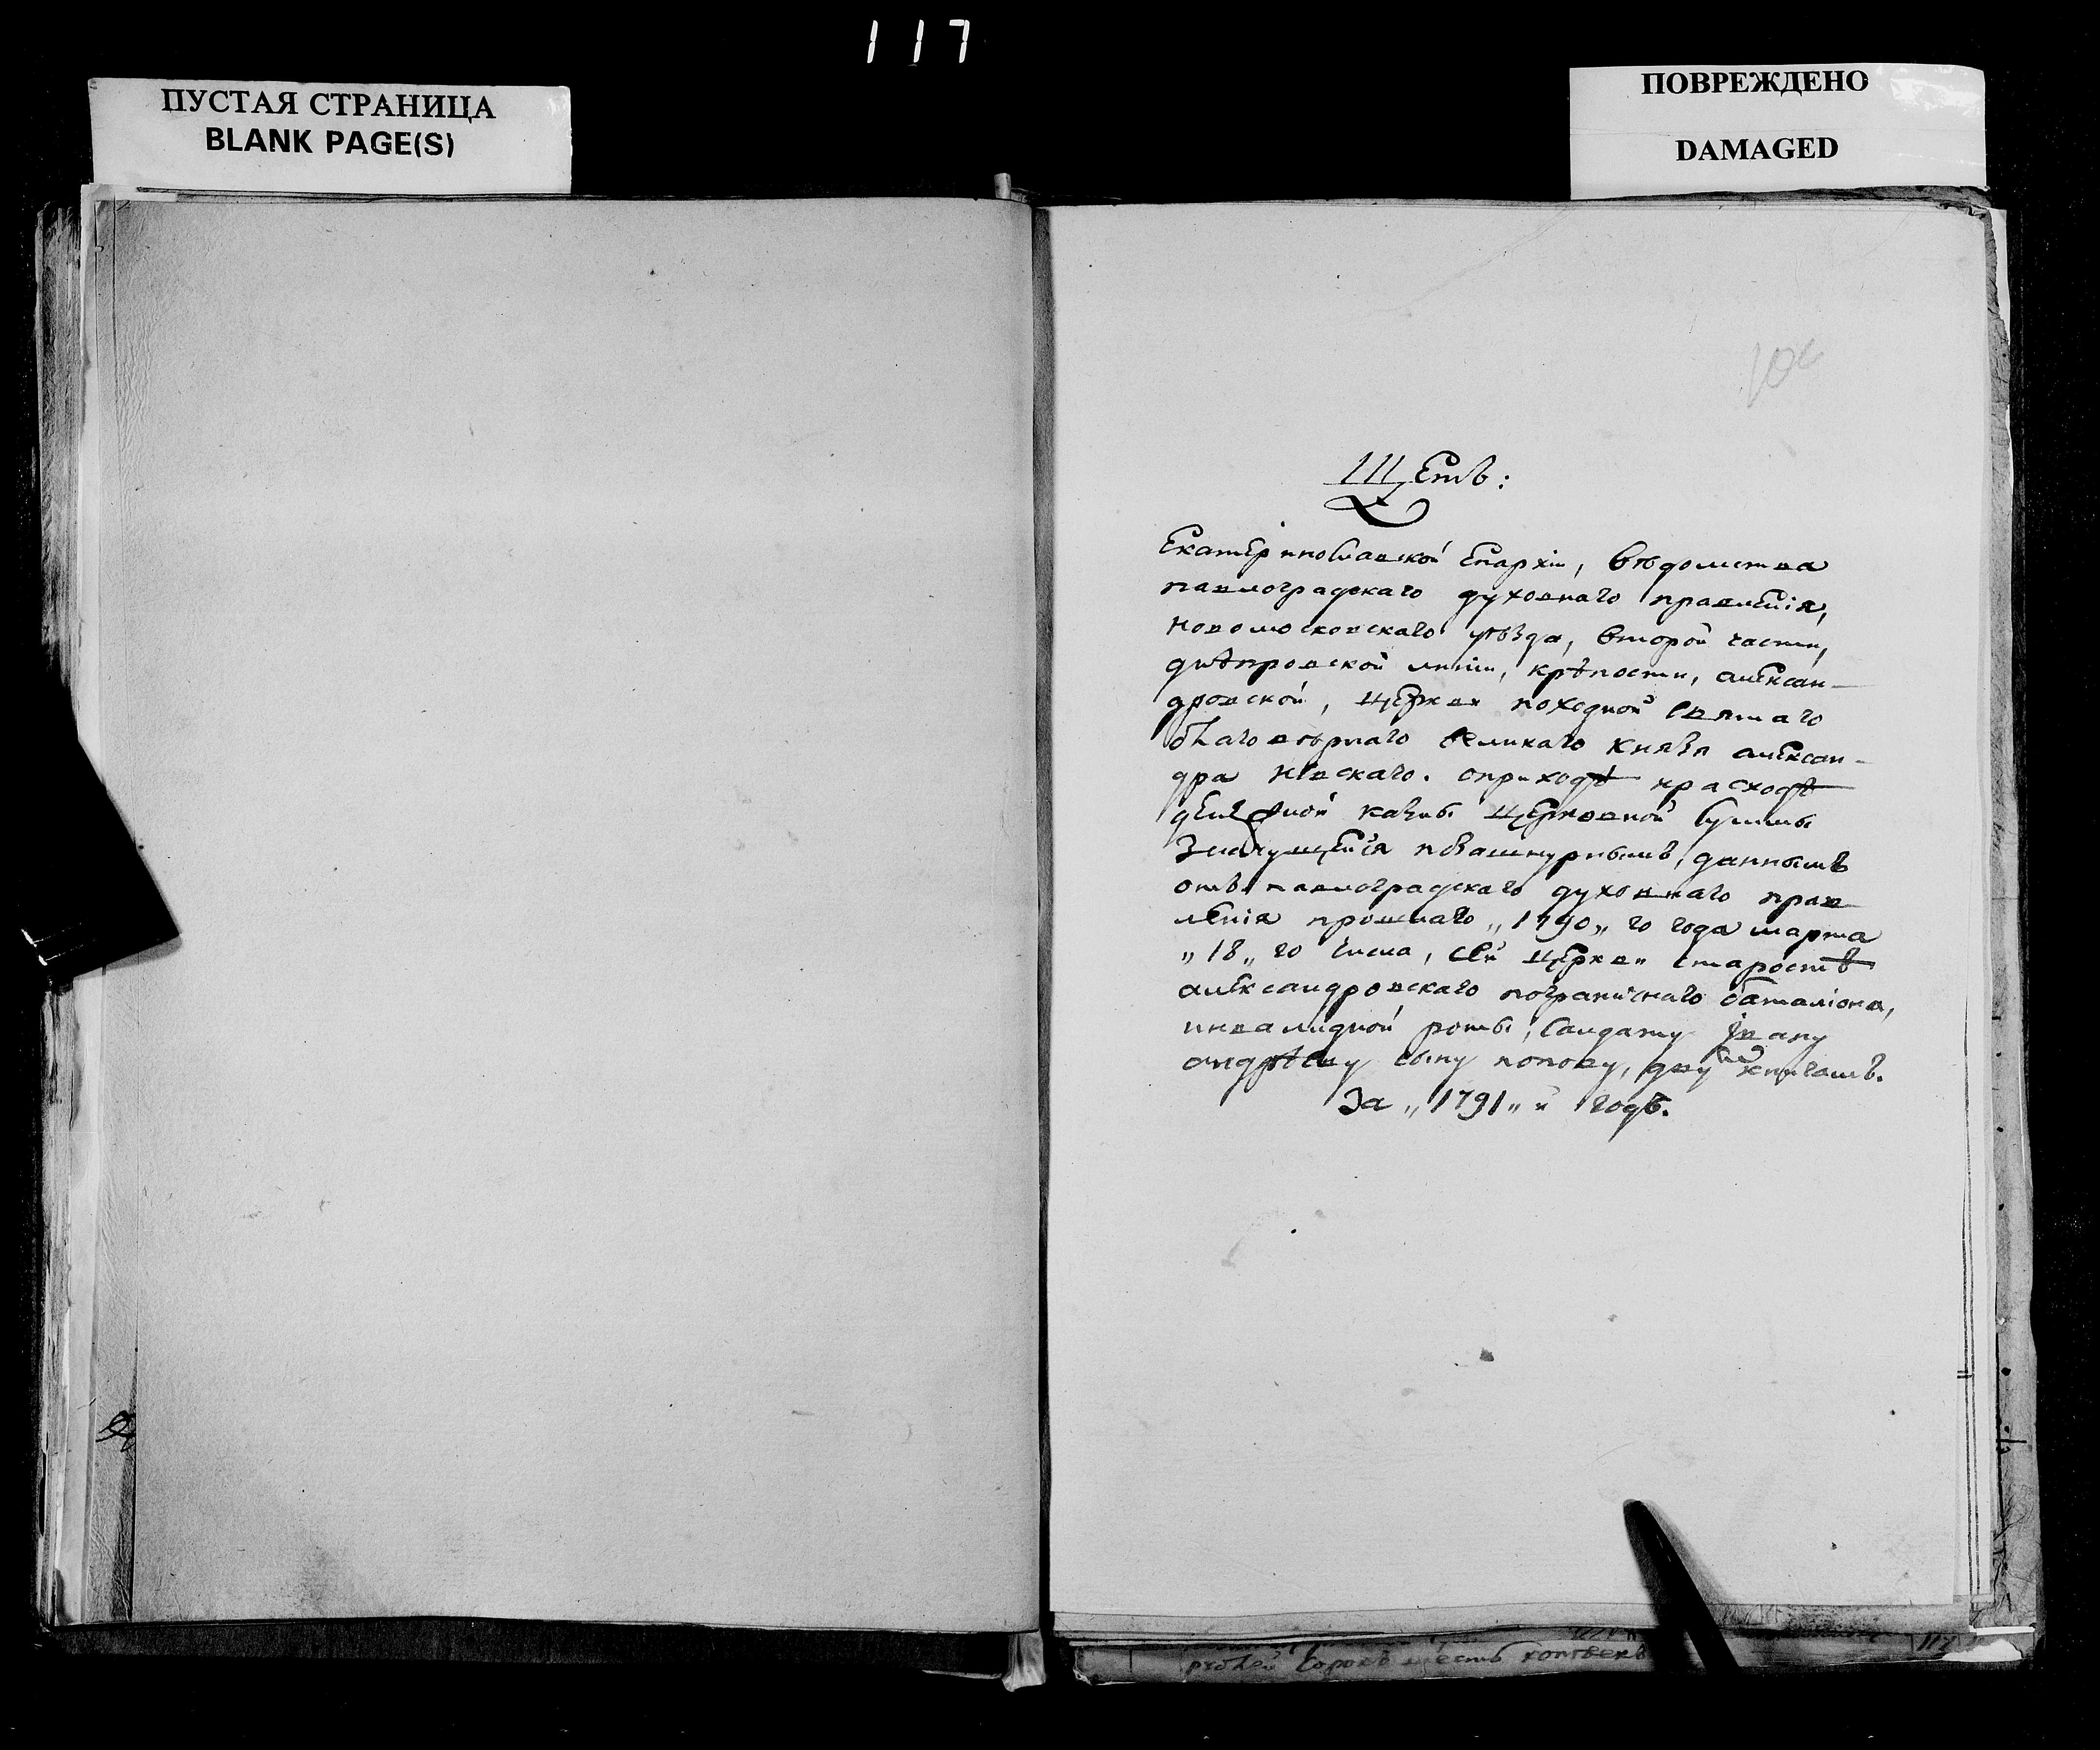 117
ПУСТАЯ СТРАНИЦА
BLANK PAGE(S)
ПОВРЕЖДЕНО
DAMAGED
Щетъ:
Екатеринославской Епархiи, вѣдомства
павлоградскаго духовнаго правленiя,
новомосковскаго уѣзда, второй части,
днѣпровской линiи, крѣпости, алексан-
дровской, церкви походной святаго
благовѣрнаго великаго князя алексан-
дра невскаго. оприходѣ ирасходѣ
денежной казны церковной суммы
Значущейся позашнурнымъ, даннымъ
отъ павлоградскаго духовнаго прав
ленiя прошлаго „1790„ го года марта
„18„ го числа, сей церкви старостѣ
александровскаго пограничнаго баталiона,
инвалидной роты, салдату iвану
андрѣеву сыну попову, двум книгамъ.
За „1791„ й годъ.
рублей сорокъ шесть копѣекъ